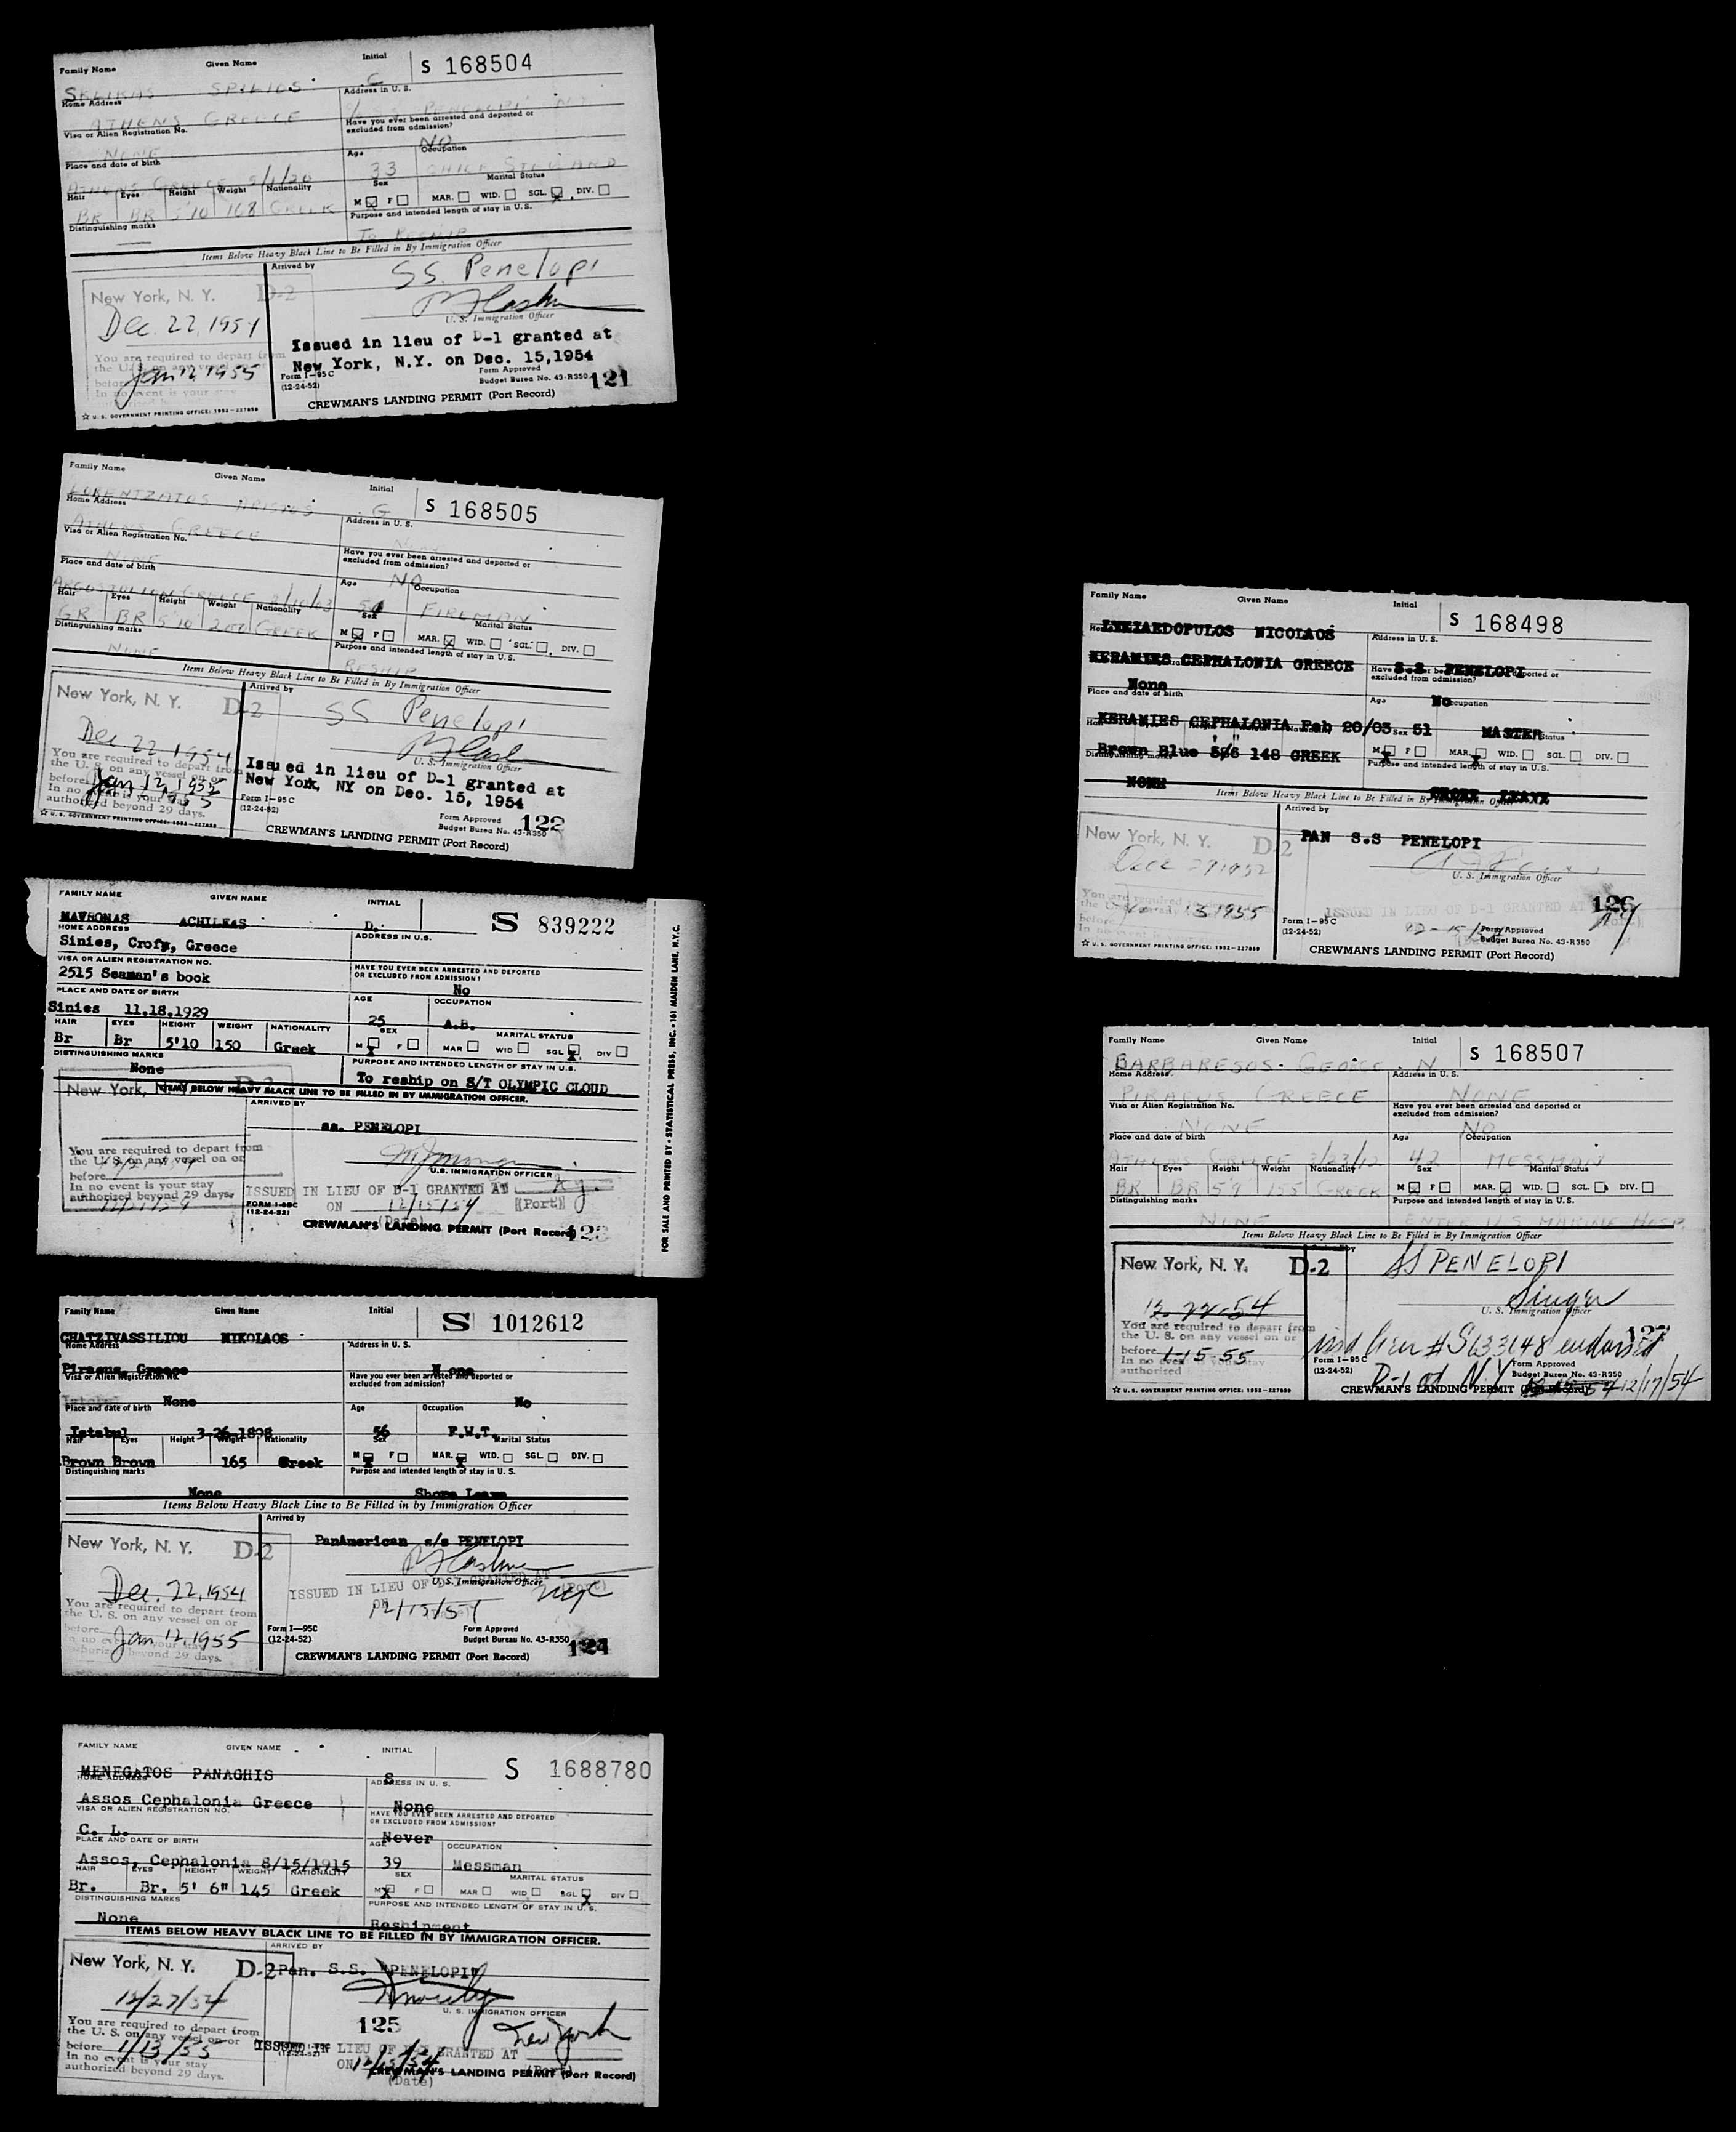 Family Name Given Name Initial S 168504
SPILIOS C
Home Address Address in U. S.
ATHENS GREECE PENELOPI N.Y.
Visa or Alien Registration No. Have you ever been arrested and deported or excluded from admission?
NONE NO
Place and date of birth Age Occupation
ATHENS GREECE 5/1/20 33 CHIEF STEWARD
Hair Eyes Height Weight Nationality Sex Marital Status
BR BR 5'10 168 GREEK M X F MAR. WID. SGL. X DIV.
Distinguishing marks Purpose and intended length of stay in U. S.
To RESHIP
Items Below Heavy Black Line to Be Filled in By Immigration Officer
Arrived by SS. Penelopi
New York, N. Y. D-2
Dec. 22, 1954
U. S. Immigration Officer
Issued in lieu of D-1 granted at
New York, N.Y. on Dec. 15, 1954
You are required to depart from
the U. S. on any vessel on or
before Jan 12, 1955
In no event is your stay
Form I-95 C (12-24-52)
Form Approved
Budget Burea No. 43-R350 121
CREWMAN'S LANDING PERMIT (Port Record)
☆ U. S. GOVERNMENT PRINTING OFFICE: 1952-227859
Family Name Given Name Initial S 168505
LORENTZATOS G
Home Address Address in U. S.
ATHENS GREECE
Visa or Alien Registration No. Have you ever been arrested and deported or excluded from admission?
NONE NO
Place and date of birth Age Occupation
ARGOSTOLION GREECE 51 FIREMAN
Hair Eyes Height Weight Nationality Sex Marital Status
GR BR 5'10 200 GREEK M X F MAR. X WID. SGL. DIV.
Distinguishing marks Purpose and intended length of stay in U. S.
NONE RESHIP
Items Below Heavy Black Line to Be Filled in By Immigration Officer
Arrived by SS Penelopi
New York, N. Y. D-2
Dec 22 1954
U. S. Immigration Officer
Issued in lieu of D-1 granted at
New York, NY on Dec. 15, 1954
You are required to depart from
the U. S. on any vessel on or
before Jan 12, 1955
In no event is your stay
authorized beyond 29 days.
Form I-95 C (12-24-52)
Form Approved
Budget Burea No. 43-R350 122
CREWMAN'S LANDING PERMIT (Port Record)
☆ U. S. GOVERNMENT PRINTING OFFICE: 1952-227859
FAMILY NAME GIVEN NAME INITIAL S 839222
MAVROMAS ACHILEAS D.
HOME ADDRESS ADDRESS IN U.S.
Sinies, Crofy, Greece
VISA OR ALIEN REGISTRATION NO. HAVE YOU EVER BEEN ARRESTED AND DEPORTED OR EXCLUDED FROM ADMISSION?
2515 Seaman's book No
PLACE AND DATE OF BIRTH AGE OCCUPATION
Sinies 11.18.1929 25 A.B.
HAIR EYES HEIGHT WEIGHT NATIONALITY SEX MARITAL STATUS
Br Br 5'10 150 Greek M X F MAR WID SGL X DIV
DISTINGUISHING MARKS PURPOSE AND INTENDED LENGTH OF STAY IN U.S.
None To reship on S/T OLYMPIC CLOUD
ITEMS BELOW HEAVY BLACK LINE TO BE FILLED IN BY IMMIGRATION OFFICER.
New York, N. Y. D-2
ARRIVED BY ss. PENELOPI
U.S. IMMIGRATION OFFICER
You are required to depart from
the U. S. on any vessel on or
before
In no event is your stay
authorized beyond 29 days.
ISSUED IN LIEU OF D-1 GRANTED AT (Port)
ON 12/15/54 (Date)
FORM I-95C (12-24-52)
CREWMAN'S LANDING PERMIT (Port Record) 123
FOR SALE AND PRINTED BY • STATISTICAL PRESS, INC. • 101 MAIDEN LANE, N.Y.C.
Family Name Given Name Initial S 1012612
CHATZIVASSILIOU NIKOLAOS
Home Address Address in U. S.
Piraeus, Greece None
Visa or Alien Registration No. Have you ever been arrested and deported or excluded from admission?
None No
Place and date of birth Age Occupation
Istabul 3-26-1898 56 F.W.T.
Hair Eyes Height Weight Nationality Sex Marital Status
Brown Brown 165 Greek M X F MAR. X WID. SGL. DIV.
Distinguishing marks Purpose and intended length of stay in U. S.
None Shore Leave
Items Below Heavy Black Line to Be Filled in by Immigration Officer
Arrived by PanAmerican s/s PENELOPI
New York, N. Y. D-2
Dec. 22, 1954
U. S. Immigration Officer
ISSUED IN LIEU OF D-1 GRANTED AT NYC (Port)
ON 12/15/54
You are required to depart from
the U. S. on any vessel on or
before Jan 12, 1955
In no event is your stay
authorized beyond 29 days.
Form I—95C (12-24-52)
Form Approved
Budget Bureau No. 43-R350 124
CREWMAN'S LANDING PERMIT (Port Record)
FAMILY NAME GIVEN NAME INITIAL S 1688780
MENEGATOS PANAGHIS S
HOME ADDRESS ADDRESS IN U. S.
Assos Cephalonia Greece None
VISA OR ALIEN REGISTRATION NO. HAVE YOU EVER BEEN ARRESTED AND DEPORTED OR EXCLUDED FROM ADMISSION?
C. L. Never
PLACE AND DATE OF BIRTH AGE OCCUPATION
Assos, Cephalonia 8/15/1915 39 Messman
HAIR EYES HEIGHT WEIGHT NATIONALITY SEX MARITAL STATUS
Br. Br. 5' 6" 145 Greek M X F MAR WID SGL X DIV
DISTINGUISHING MARKS PURPOSE AND INTENDED LENGTH OF STAY IN U. S.
None Reshipment
ITEMS BELOW HEAVY BLACK LINE TO BE FILLED IN BY IMMIGRATION OFFICER.
ARRIVED BY
New York, N. Y. D-2 Pan. S.S. "PENELOPI"
12/27/54
U. S. IMMIGRATION OFFICER
125 New York
You are required to depart from
the U. S. on any vessel on or
before 1/13/55
In no event is your stay
authorized beyond 29 days.
ISSUED IN LIEU OF D-1 GRANTED AT (Port)
ON 12/15/54 (Date)
CREWMAN'S LANDING PERMIT (Port Record)
Family Name Given Name Initial S 168498
NICOLAOS
Address in U. S.
KERAMIES CEPHALONIA GREECE S.S PENELOPI
Have you ever been arrested and deported or excluded from admission?
None No
Place and date of birth Age Occupation
KERAMIES CEPHALONIA Feb 20/03 51 MASTER
Brown Blue 5'6" 148 GREEK M X F MAR. X WID. SGL. DIV.
Distinguishing marks Purpose and intended length of stay in U. S.
NONE
Items Below Heavy Black Line to Be Filled in By Immigration Officer
Arrived by PAN S.S PENELOPI
New York, N. Y. D-2
U. S. Immigration Officer
ISSUED IN LIEU OF D-1 GRANTED AT
12-15-54
You are required to depart from
the U. S.
before 13 1955
Form I-95 C (12-24-52)
Form Approved
Budget Burea No. 43-R350 126
CREWMAN'S LANDING PERMIT (Port Record)
☆ U. S. GOVERNMENT PRINTING OFFICE: 1952-227859
Family Name Given Name Initial S 168507
BARBARESOS GEORGE N
Home Address Address in U. S.
PIRAEUS GREECE NONE
Visa or Alien Registration No. Have you ever been arrested and deported or excluded from admission?
NONE NO
Place and date of birth Age Occupation
ATHENS GREECE 3/23/12 42 MESSMAN
Hair Eyes Height Weight Nationality Sex Marital Status
BR BR 5'9 155 GREEK M X F MAR. X WID. SGL. DIV.
Distinguishing marks Purpose and intended length of stay in U. S.
NONE ENTER U.S MARINE HOSP.
Items Below Heavy Black Line to Be Filled in By Immigration Officer
New York, N. Y. D-2 SS PENELOPI
12-22-54 Singer
U. S. Immigration Officer
You are required to depart from
the U. S. on any vessel on or
before 1-15-55
In no event is your stay
authorized
# S633148 endorsed 127
D-1 at N.Y. 12/17/54
Form I-95 C (12-24-52)
Form Approved
Budget Burea No. 43-R350
CREWMAN'S LANDING PERMIT (Port Record)
☆ U. S. GOVERNMENT PRINTING OFFICE: 1952-227859